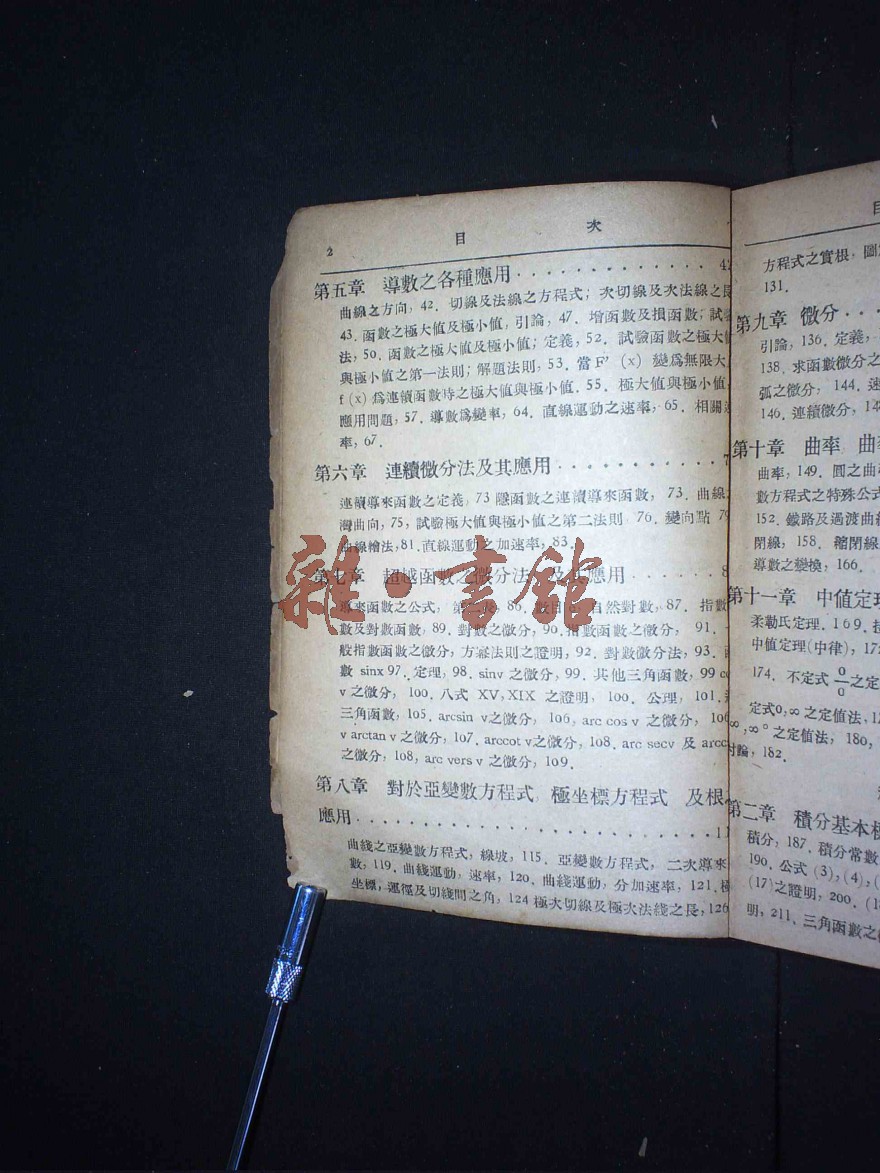 2 目 次
第五章 導數之各種應用 . . . . . . . . . . . . . . 42
曲線之方向, 42. 切線及法線之方程式; 次切線及次法線之長
43. 函數之極大值及極小值, 引論, 47. 增函數及損函數; 試驗
法, 50. 函數之極大值及極小值; 定義, 52. 試驗函數之極大值
與極小值之第一法則; 解題法則, 53. 當 F' (x) 變爲無限大
f (x) 爲連續函數時之極大值與極小值. 55. 極大值與極小値
應用問題, 57. 導數爲變率, 64. 直線運動之速率, 65. 相關
率, 67.
第六章 連續微分法及其應用 . . . . . . . . . . . 7
連續導來函數之定義, 73 隱函數之連續導來函數, 73. 曲線
灣曲向, 75, 試驗極大值與極小值之第二法則 76. 變向點 79
曲線繪法, 81. 直線運動之加速率, 83.
第七章 超越函數之微分法 及其應用 . . . . . . . 8
導來函數之公式, 第二表, 86. 自然對數, 87. 指數
數及對數函數, 89. 對數之微分, 90. 指數函數之微分, 91.
般指數函數之微分, 方冪法則之證明, 92. 對數微分法, 93.
數 sinx 97. 定理, 98. sinv 之微分, 99. 其他三角函數, 99 co
v 之微分, 100. 八式 XV, XIX 之證明, 100. 公理, 101.
三角函數, 105. arcsin v之微分, 106, arc cos v 之微分, 106
v arctan v 之微分, 107. arccot v之微分, 108. arc secv 及 arcc
之微分, 108, arc vers v 之微分, 109.
第八章 對於亞變數方程式 極坐標方程式 及根
應用 . . . . . . . . . . . . . . . . . . . . . . 11
曲綫之亞變數方程式, 線坡, 115. 亞變數方程式, 二次導來
數, 119. 曲綫運動, 速率, 120. 曲綫運動, 分加速率, 121. 極
坐標, 運徑及切綫間之角, 124 極次切線及極次法綫之長, 126
目
方程式之實根, 圖
131.
第九章 微分 . . .
引論, 136. 定義,
138. 求函數微分之
弧之微分, 144. 速
146. 連續微分, 14
第十章 曲率 曲
曲率, 149. 圓之曲
數方程式之特殊公式
152. 鐵路及過渡曲
閉線, 158. 縮閉線
導數之變換, 166.
第十一章 中値定理
柔勒氏定理. 169.
中値定理(中律), 17
174. 不定式 0/0 之定
定式0,∞ 之定值法, 1
∞,∞° 之定值法, 180,
討論, 182.
第二章 積分基本
積分, 187. 積分常數
190. 公式 (3), (4), (
(17)之證明, 200. (1
明, 211. 三角函數之
雜·書館